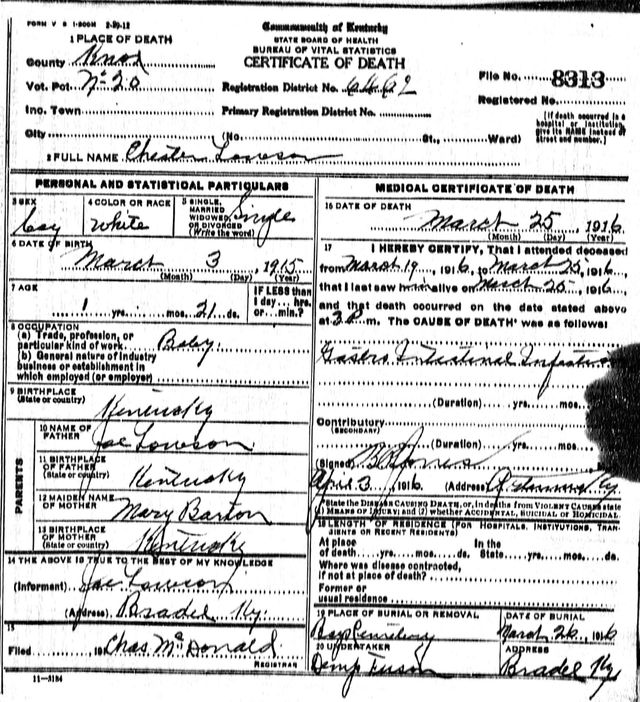 FORM V S 1-200M 2-29-12
Commonwealth of Kentucky
STATE BOARD OF HEALTH
BUREAU OF VITAL STATISTICS
CERTIFICATE OF DEATH
1 PLACE OF DEATH
County Knox
Vot. Pct. No 20
Registration District No.
File No. 8313
Inc. Town
Primary Registration District No.
Registered No.
City
(No. St., Ward)
[If death occurred in a hospital or institution, give its NAME instead of street and number.]
2 FULL NAME Chester Lawson
PERSONAL AND STATISTICAL PARTICULARS
3 SEX
boy
4 COLOR OR RACE
white
5 SINGLE, MARRIED WIDOWED, OR DIVORCED (Write the word)
Single
6 DATE OF BIRTH
March 3, 1915
(Month) (Day) (Year)
7 AGE
1 yrs. mos. 21 ds.
IF LESS than 1 day... hrs. or min.?
8 OCCUPATION
(a) Trade, profession, or particular kind of work. Baby
(b) General nature of industry business or establishment in which employed (or employer)
9 BIRTHPLACE
(State or country)
Kentucky
PARENTS
10 NAME OF FATHER
Joe Lawson
11 BIRTHPLACE OF FATHER
(State or country)
Kentucky
12 MAIDEN NAME OF MOTHER
Mary Barton
13 BIRTHPLACE OF MOTHER
(State or country)
Kentucky
14 THE ABOVE IS TRUE TO THE BEST OF MY KNOWLEDGE
(Informant) Joe Lawson
(Address) Ky.
15
Filed 191 Chas McDonald
REGISTRAR
11-3184
MEDICAL CERTIFICATE OF DEATH
16 DATE OF DEATH
March 25, 1916
(Month) (Day) (Year)
17 I HEREBY CERTIFY, That I attended deceased
from March 19, 1916, to March 25, 1916,
that I last saw him alive on March 25, 1916,
and that death occurred on the date stated above
at 3 P m. The CAUSE OF DEATH* was as follows:
Gastro Intestinal
(Duration) yrs. mos.
Contributory
(SECONDARY)
(Duration) yrs. mos.
(Signed) Jones
April 3, 1916 (Address) Ky
*State the DISEASE CAUSING DEATH, or, in deaths from VIOLENT CAUSES state (1) MEANS OF INJURY; and (2) whether ACCIDENTAL, SUICIDAL or HOMICIDAL.
18 LENGTH OF RESIDENCE (FOR HOSPITALS, INSTITUTIONS, TRANSIENTS OR RECENT RESIDENTS)
At place of death yrs. mos. ds. In the State yrs. mos. ds.
Where was disease contracted, if not at place of death?
Former or usual residence
19 PLACE OF BURIAL OR REMOVAL
Cemetery
DATE OF BURIAL
March 26, 1916
20 UNDERTAKER
ADDRESS
Ky